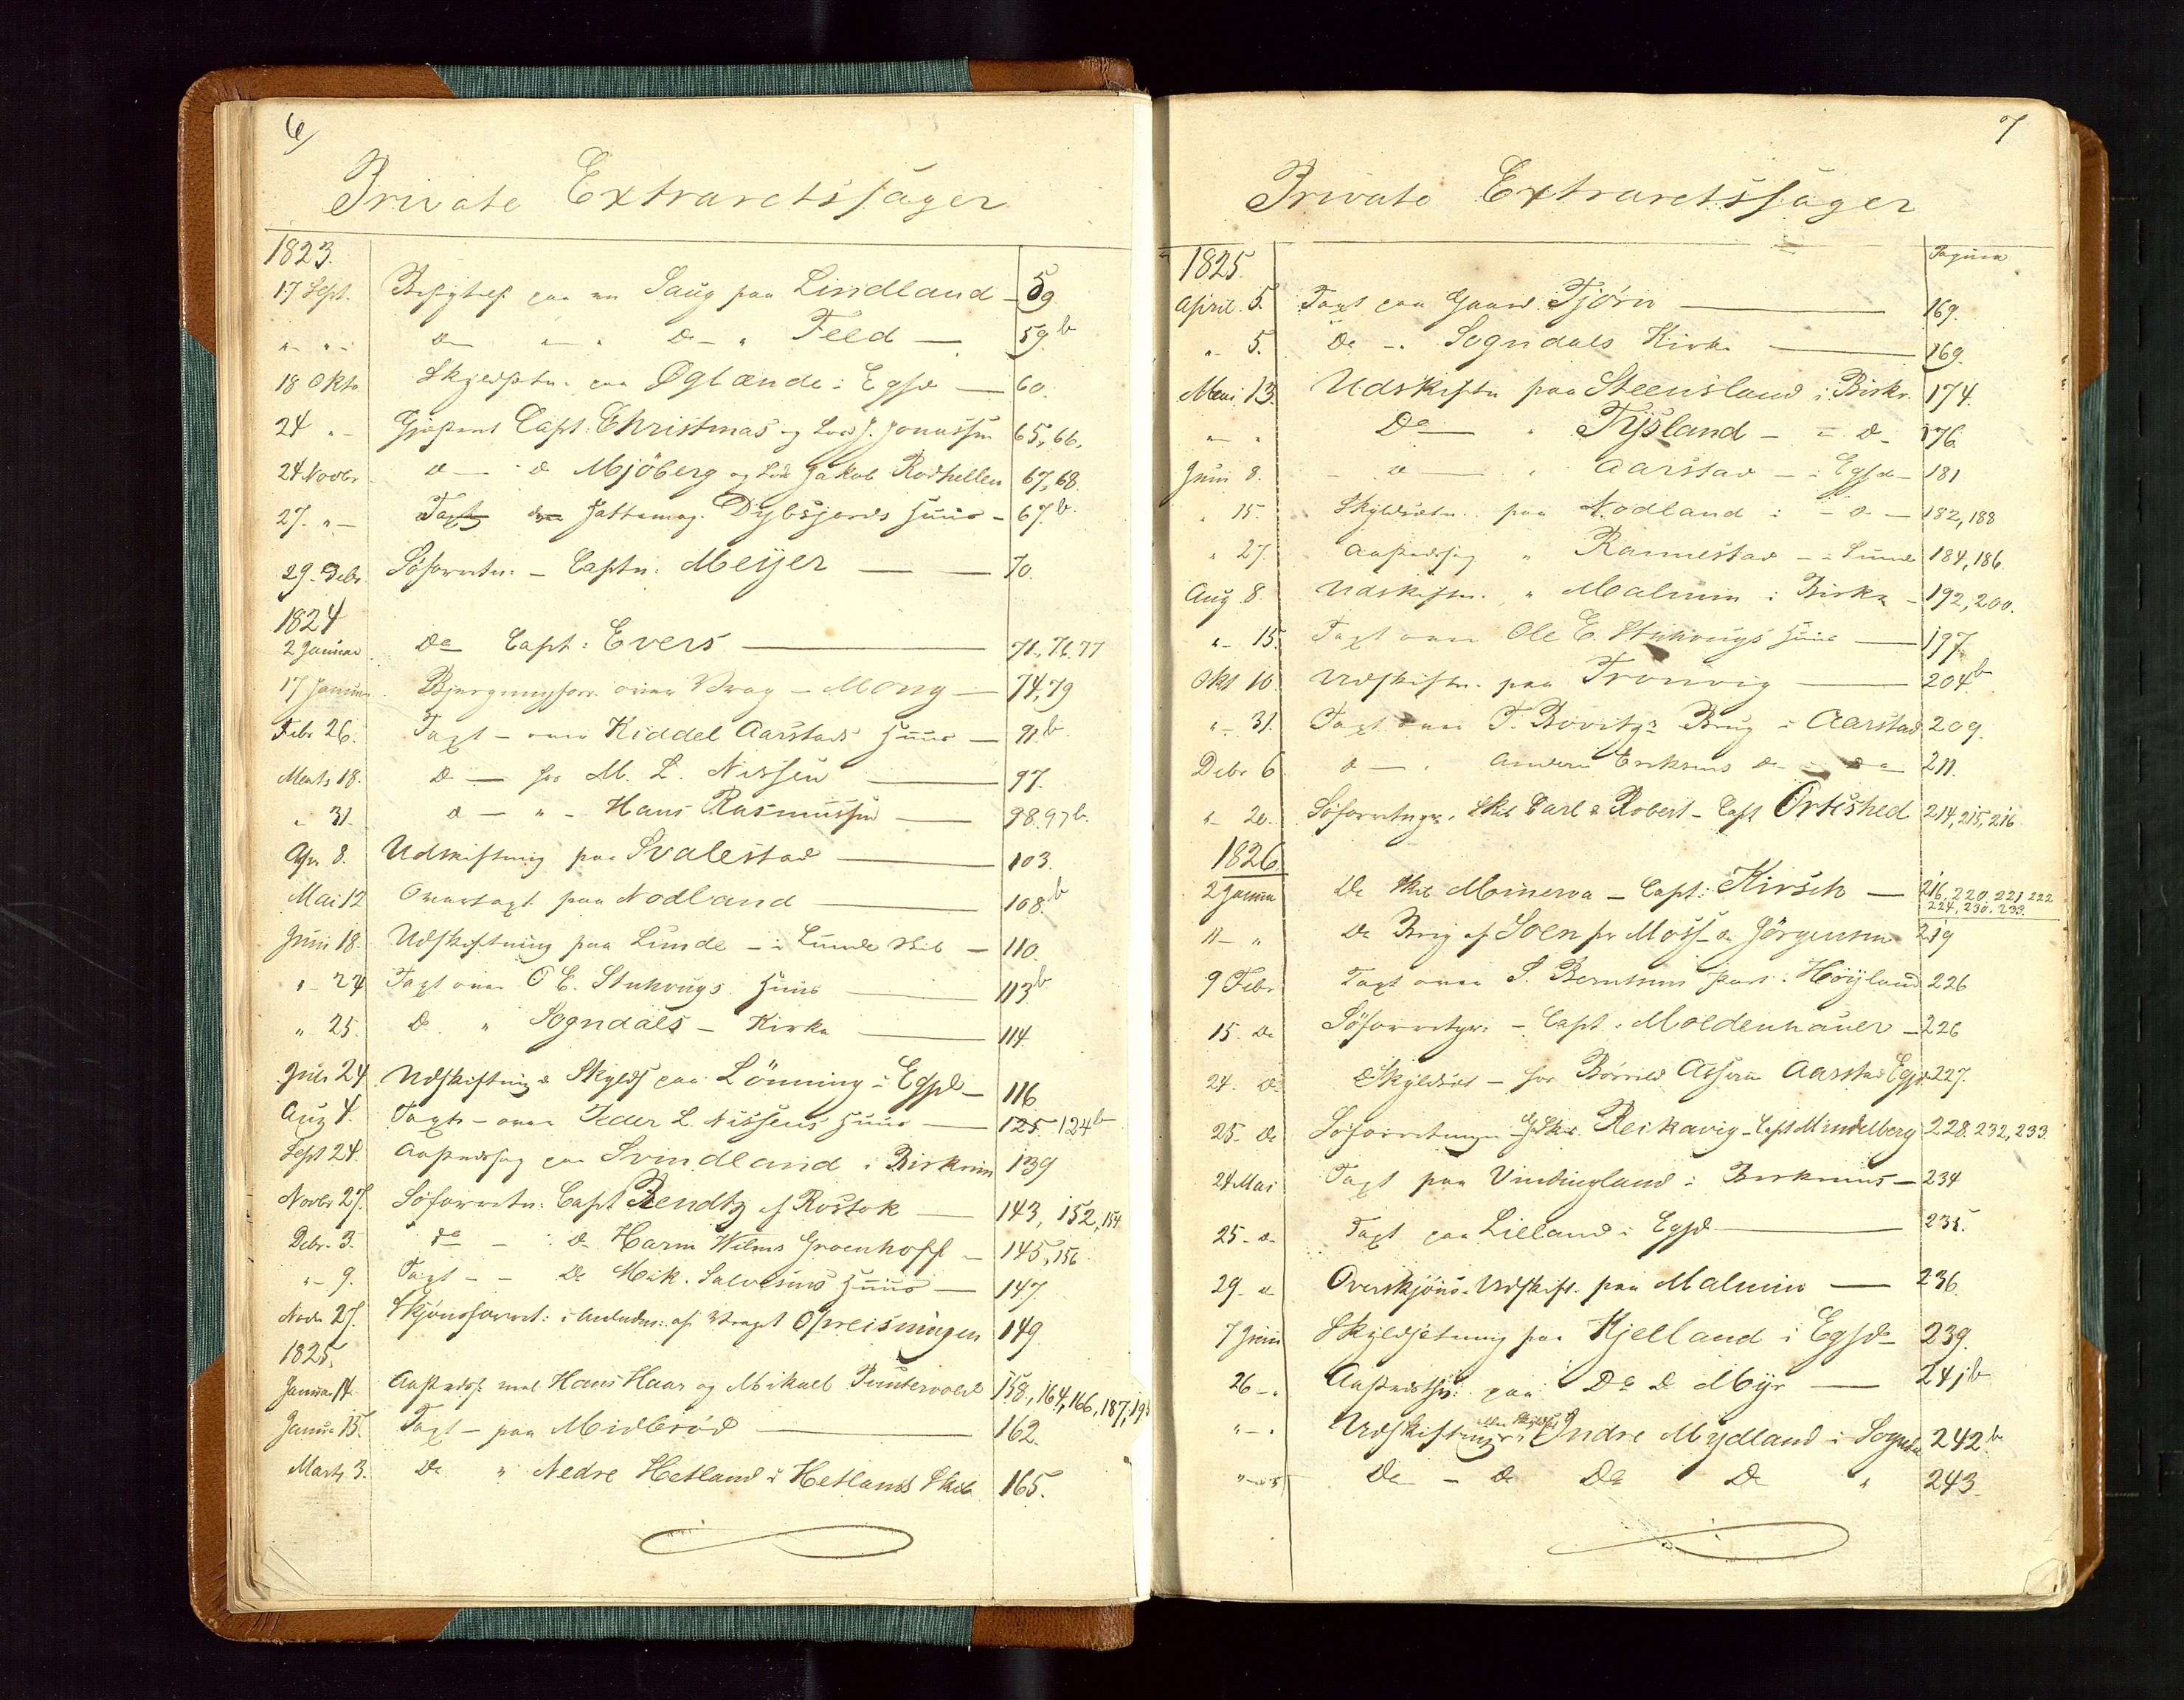 6
Private Extraretssager
1823.
17 Sept. Besigtels paa en Saug paa Lindland - 59
" " - d - " - " D - " Feld - 59 b
18 Okto Skyldsætn. paa Øglænde i Egsd - 60.
24 " - Gjæstent Capt. Christmas og Lods J. Jonassen 65, 66,
24 Novbr. d - - d Mjöberg og Lods Jakob Rodhellen 67, 68.
27. " - Taxt over Jattemag. Dybsjords Huus - 67 b.
29. Debr. Söforretn. - Captn. Meijer - 70.
1824
2 Januar Do Capt: Evers - 71, 76. 77
17 Januar Bjergningsforr. over Vrag - Mong - 74, 79
Febr 26. Taxt - over Kiddel Aarstads Huus - 91 b.
Marts 18. D - for M. L. Nissen - 97.
" 31. d - " - Hans Rasmussen - 98. 97 b.
Apr 8. Udskiftning paa Svalestad - 103.
Mai 12 Overtaxt paa Nodland - 108. b
Juni 18. Udskiftning paa Lunde - i Lunde Skib - 110.
" - 24 Taxt over O E. Stuhougs Huus - 113 b
" 25. D. " Sogndals - Kirke - 114.
Juli 24 Udskiftning & Skylds paa Lönning i Egsd - 116
Aug 4. Taxt - over Peder L. Nissens Huus - 125 124 b
Sept 24. Aastedssag paa Svindland i Birkrim 139
Novbr 27. Söforretn: Capt Rendtz af Rostok - 143, 152, 154
Debr. 3. do - : d. Harm Wilms Groenhoff - 145, 156
" - 9. Taxt - - Do Mik. Salvesens Huus - 147.
Novbr 27. Skjönsforret: i Anledn: af Vraget Opreisningen 149.
1825.
Januar 14. Aastedss. mel Hans Haar og Mikael Puntervold 158, 164, 166, 187, 19
Januar 15. Taxt - paa Midbröd - 162.
Marts 3. Do " Nedre Hetland i Hetlands Skib 165.
7
Private Extraretssager
Pagina
1825.
April. 5. Taxt paa Gaard Tjörn - 169.
" - 5. Do - " Sogndals Kirke - 169.
Mai 13. Udskiftn paa Steensland i Birkr. 174.
" - " Do - " Tÿsland - " d - 176
Juni 8. - d - " Aarstad - i Egsd - 181
" 15. Skyldsætn. paa Nodland i - d - 182, 188
" 27. Aastedssag " Rannestad - i Lunde 184, 186.
Aug 8. Udskiftn. " Malmin i Birkr - 192, 200.
" - 15. Taxt over Ole E. Stuhougs Huus - 197.
Okt 10. Udskiftn. paa Tronvig - 204 b
" - 31. Taxt over T. Bovitz's Brug i Aarstad 209.
Debr 6 d - " Anders Eriksens do - do 211.
" - 20. Söforretngr. Skib Carl & Robert - Capt Ortished 214, 215, 216
1826
2 Januar Do Skib Minerva - Capt: Kirsch - 216. 220. 221 222 224, 230. 233.
11 - " Do Brig af Soen for Moss d. Jörgensen 219
9 Febr Taxt over S. Berntsens Part i Höÿland 226
15. Do Söforretgr: - Capt: Moldenhauer - 226
24. D Skyldsæt - for Börrild Assers Aarstad Egsd 227.
25. Do Söforretninger Skib. Reikavig - Capt Mindelberg 228. 232, 233.
24 Mai Taxt paa Vindingland i Birkrims - 234
25 - d - Taxt paa Lilland i Egsd - 235.
29 - d Overskjöns. Udskift. paa Malmin - 236.
7 Juni Skyldsætning paa Kjelland i Egsd - 239.
26 - " Aastedsth. paa Do D Mÿr - 241 b
" - " Udskiftninger eller Skyldsæt Indre Mydland i Sognd. 242. b
" - " Do - d Do D " 243